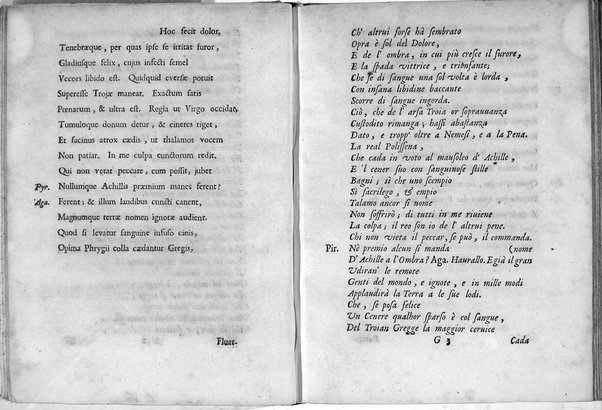 Hoc fecit dolor,
Tenebræque, per quas ipse se irritat furor,
Gladiusque felix, cujus infecti semel
Vecors libido est. Quidquid everse potuit
Superesse Trojæ maneat. Exactum satis
Pœnarum, & ultra est. Regia ut Virgo occidat,
Tumuloque donum detur, & cineres riget,
Et facinus atrox cædis, ut thalamos vocem
Non patiar. In me culpa cunctorum redit.
Qui non vetat peccare, cum possit, jubet
Pyr. Nullumque Achillis præmium manes ferent?
Aga. Ferent; & illum laudibus cuncti canent,
Magnumque terræ nomen ignotæ audient.
Quod si levatur sanguine infuso cinis,
Opima Phrygii colla cædantur Gregis,
Fluat-
Ch' altrui forse hà sembrato
Opra è sol del Dolore,
E de l' ombra, in cui più cresce il furore,
E la spada vittrice, e trionfante;
Che se di sangue una sol volta è lorda,
Con insana libidine baccante
Scorre di sangue ingorda.
Ciò, che de l' arsa Troia or soprauuanza
Custodito rimanga; hassi abastanza
Dato, e tropp' oltre a Nemesi, e a la Pena.
La real Polissena,
Che cada in voto al mausoleo d' Achille,
E 'l cener suo con sanguinose stille
Bagni; sì che uno scempio
Sì sacrilego, & empio
Talamo ancor si nome
Non soffrirò; di tutti in me riuiene
La colpa; il reo son io de l' altrui pene.
Chi non vieta il peccar, se può, il commanda.
Pir. Nè premio alcun si manda (nome
D' Achille a l'Ombra? Aga. Haurallo. E già il gran
Udiran' le remote
Genti del mondo, e ignote, e in mille modi
Applaudirà la Terra a le sue lodi.
Che, se posa felice
Un Cenere qualhor sparso è col sangue,
Del Troian Gregge la maggior ceruice
G 3 Cada